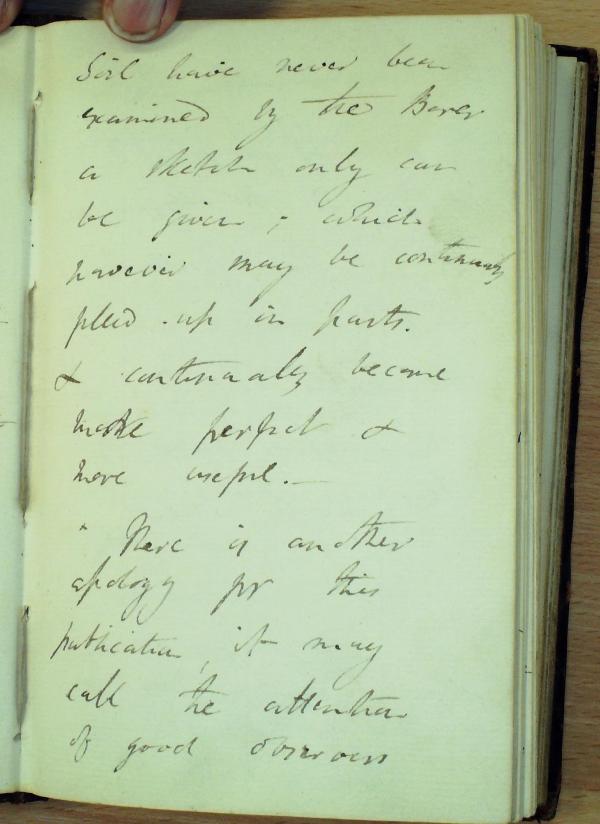 Soil have never been
examined by the Borer
a sketch only can
be given; which
however may be continually
filled up in parts.
& continually become
more perfect &
more useful. —
" There is another
apology for this
publication, it may
call the attention
of good observers